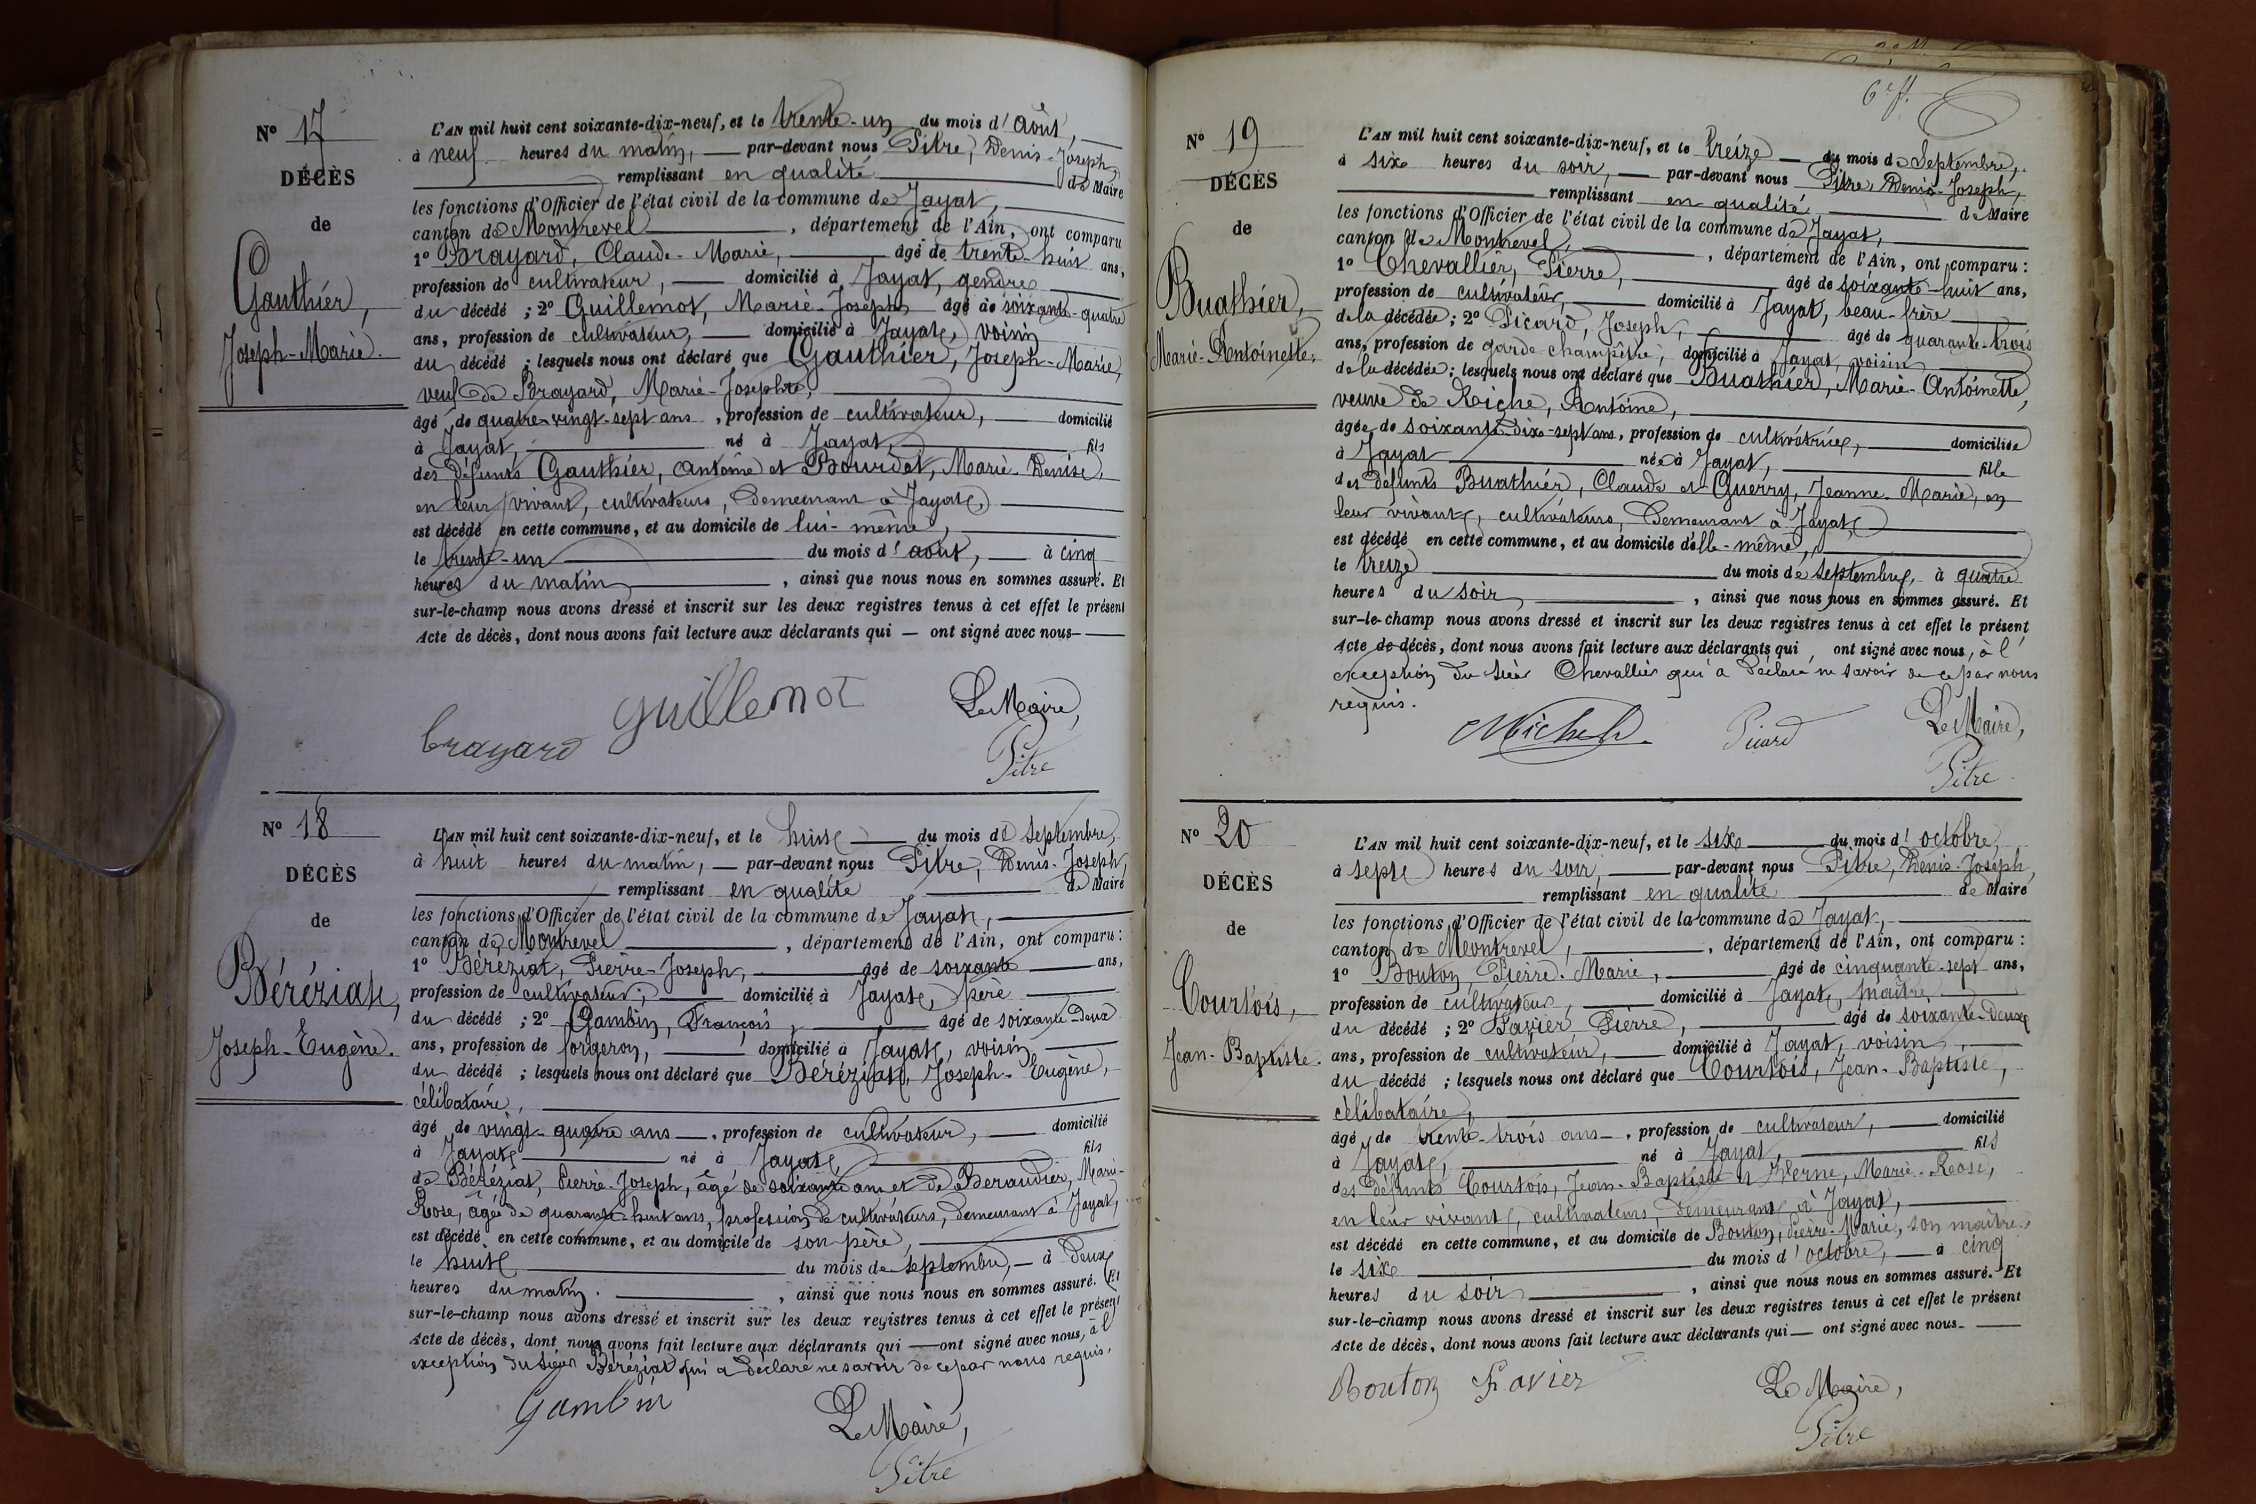 N° 17
DÉCÈS
de
Gauthier,
Joseph-Marie.
L'AN mil huit cent soixante-dix-neuf, et le trente-un du mois d'Août,
à neuf heures du matin, par-devant nous Pitre, Denis-Joseph,
remplissant en qualité de Maire
les fonctions d'Officier de l'état civil de la commune de Jayat,
canton de Montrevel, département de l'Ain, ont comparu
1° Brayard, Claude-Marie, âgé de trente-huit ans,
profession de cultivateur, domicilié à Jayat, gendre
du décédé ; 2° Guillemot, Marie-Joseph âgé de soixante-quatre
ans, profession de cultivateur, domicilié à Jayat, voisin
du décédé ; lesquels nous ont déclaré que Gauthier, Joseph-Marie,
veuf de Brayard, Marie-Josephte,
âgé de quatre-vingt-sept ans, profession de cultivateur, domicilié
à Jayat, né à Jayat, fils
des défunts Gauthier, Antoine et Bourdet, Marie-Denise,
en leur vivant, cultivateurs, demeurant à Jayat,
est décédé en cette commune, et au domicile de lui-même,
le trente-un du mois d'août, à cinq
heures du matin, ainsi que nous nous en sommes assuré. Et
sur-le-champ nous avons dressé et inscrit sur les deux registres tenus à cet effet le présent
Acte de décès, dont nous avons fait lecture aux déclarants qui — ont signé avec nous
brayard guillemot Le Maire,
Pitre
N° 18
DÉCÈS
de
Béréziat,
Joseph-Eugène.
L'AN mil huit cent soixante-dix-neuf, et le huit du mois de Septembre,
à huit heures du matin, par-devant nous Pitre, Denis-Joseph,
remplissant en qualité de Maire
les fonctions d'Officier de l'état civil de la commune de Jayat,
canton de Montrevel, département de l'Ain, ont comparu :
1° Béréziat, Pierre-Joseph, âgé de soixante ans,
profession de cultivateur, domicilié à Jayat, père
du décédé ; 2° Gambin, François, âgé de soixante-deux
ans, profession de forgeron, domicilié à Jayat, voisin
du décédé ; lesquels nous ont déclaré que Béréziat, Joseph-Eugène,
célibataire,
âgé de vingt-quatre ans, profession de cultivateur, domicilié
à Jayat né à Jayat, fils
de Béréziat, Pierre-Joseph, âgé de soixante ans et de Beraudier, Marie-
Rose, âgée de quarante-huit ans, profession de cultivateurs, demeurant à Jayat,
est décédé en cette commune, et au domicile de son père,
le huit du mois de septembre, à deux
heures du matin, ainsi que nous nous en sommes assuré. Et
sur-le-champ nous avons dressé et inscrit sur les deux registres tenus à cet effet le présent
Acte de décès, dont nous avons fait lecture aux déclarants qui — ont signé avec nous, à l'
exception du sieur Béréziat qui a déclaré ne savoir de ce par nous requis.
Gambin Le Maire,
Pitre
6e f.
N° 19
DÉCÈS
de
Buathier,
Marie-Antoinette,
L'AN mil huit cent soixante-dix-neuf, et le treize du mois de Septembre,
à six heures du soir, par-devant nous Pitre, Denis-Joseph,
remplissant en qualité de Maire
les fonctions d'Officier de l'état civil de la commune de Jayat,
canton de Montrevel, département de l'Ain, ont comparu :
1° Chevallier, Pierre, âgé de soixante-huit ans,
profession de cultivateur, domicilié à Jayat, beau-frère
de la décédée ; 2° Picard, Joseph, âgé de quarante-trois
ans, profession de garde champêtre, domicilié à Jayat, voisin
de la décédée ; lesquels nous ont déclaré que Buathier, Marie-Antoinette,
veuve de Riche, Antoine,
âgée de soixante-dix-sept ans, profession de cultivatrice, domiciliée
à Jayat née à Jayat, fille
des défunts Buathier, Claude et Guerry, Jeanne-Marie, en
leur vivant, cultivateurs, demeurant à Jayat
est décédé en cette commune, et au domicile d'elle-même,
le treize du mois de septembre, à quatre
heures du soir, ainsi que nous nous en sommes assuré. Et
sur-le-champ nous avons dressé et inscrit sur les deux registres tenus à cet effet le présent
Acte de décès, dont nous avons fait lecture aux déclarants qui, ont signé avec nous, à l'
exception du sieur Chevallier qui a déclaré ne savoir de ce par nous
requis.
Michel Picard Le Maire,
Pitre
N° 20
DÉCÈS
de
Courtois,
Jean-Baptiste.
L'AN mil huit cent soixante-dix-neuf, et le six du mois d'octobre,
à sept heures du soir, par-devant nous Pitre, Denis-Joseph,
remplissant en qualité de Maire
les fonctions d'Officier de l'état civil de la commune de Jayat,
canton de Montrevel, département de l'Ain, ont comparu :
1° Bouton, Pierre-Marie, âgé de cinquante-sept ans,
profession de cultivateur, domicilié à Jayat, maître
du décédé ; 2° Favier Pierre, âgé de soixante-deux
ans, profession de cultivateur, domicilié à Jayat, voisin,
du décédé ; lesquels nous ont déclaré que Courtois, Jean-Baptiste,
célibataire,
âgé de trente-trois ans, profession de cultivateur, domicilié
à Jayat, né à Jayat, fils
des défunts Courtois, Jean-Baptiste et Verne, Marie-Rose,
en leur vivant, cultivateurs, demeurant à Jayat,
est décédé en cette commune, et au domicile de Bouton, Pierre-Marie, son maître,
le six du mois d'octobre, à cinq
heures du soir, ainsi que nous nous en sommes assuré. Et
sur-le-champ nous avons dressé et inscrit sur les deux registres tenus à cet effet le présent
Acte de décès, dont nous avons fait lecture aux déclarants qui — ont signé avec nous
Bouton Favier Le Maire,
Pitre